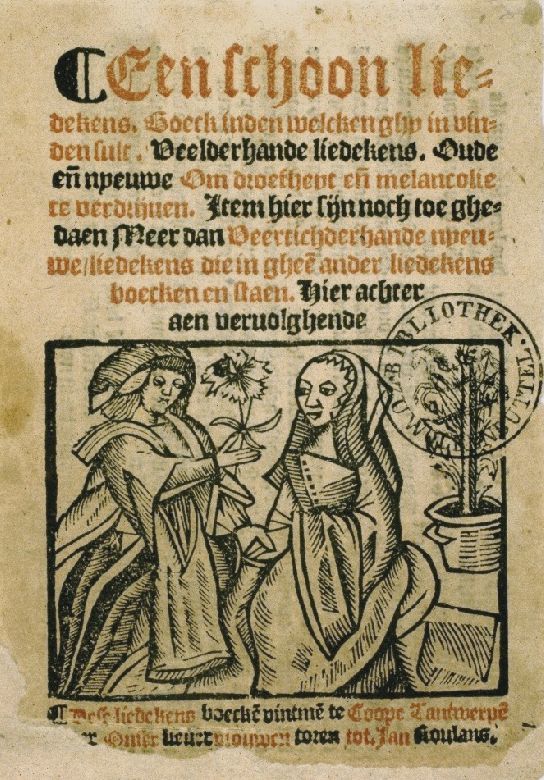 ¶ Een schoon lie=
dekens. Boeck inden welcken ghy in vin=
den sult. Veelderhande liedekens. Oude
eñ nyeuwe Om droefheyt eñ melancolie
te verdrijuen. Item hier sijn noch toe ghe=
daen Meer dan Veertichderhande nyeu=
we/liedekens die in gheē ander liedekens
boecken en staen. Hier achter
aen veruolghende
BIBLIOTHEK
¶ Dese liedekens boeckē vintmē te Coope Tantwerpē
Onser lieuer vrouwen toren tot. Jan Roulans.